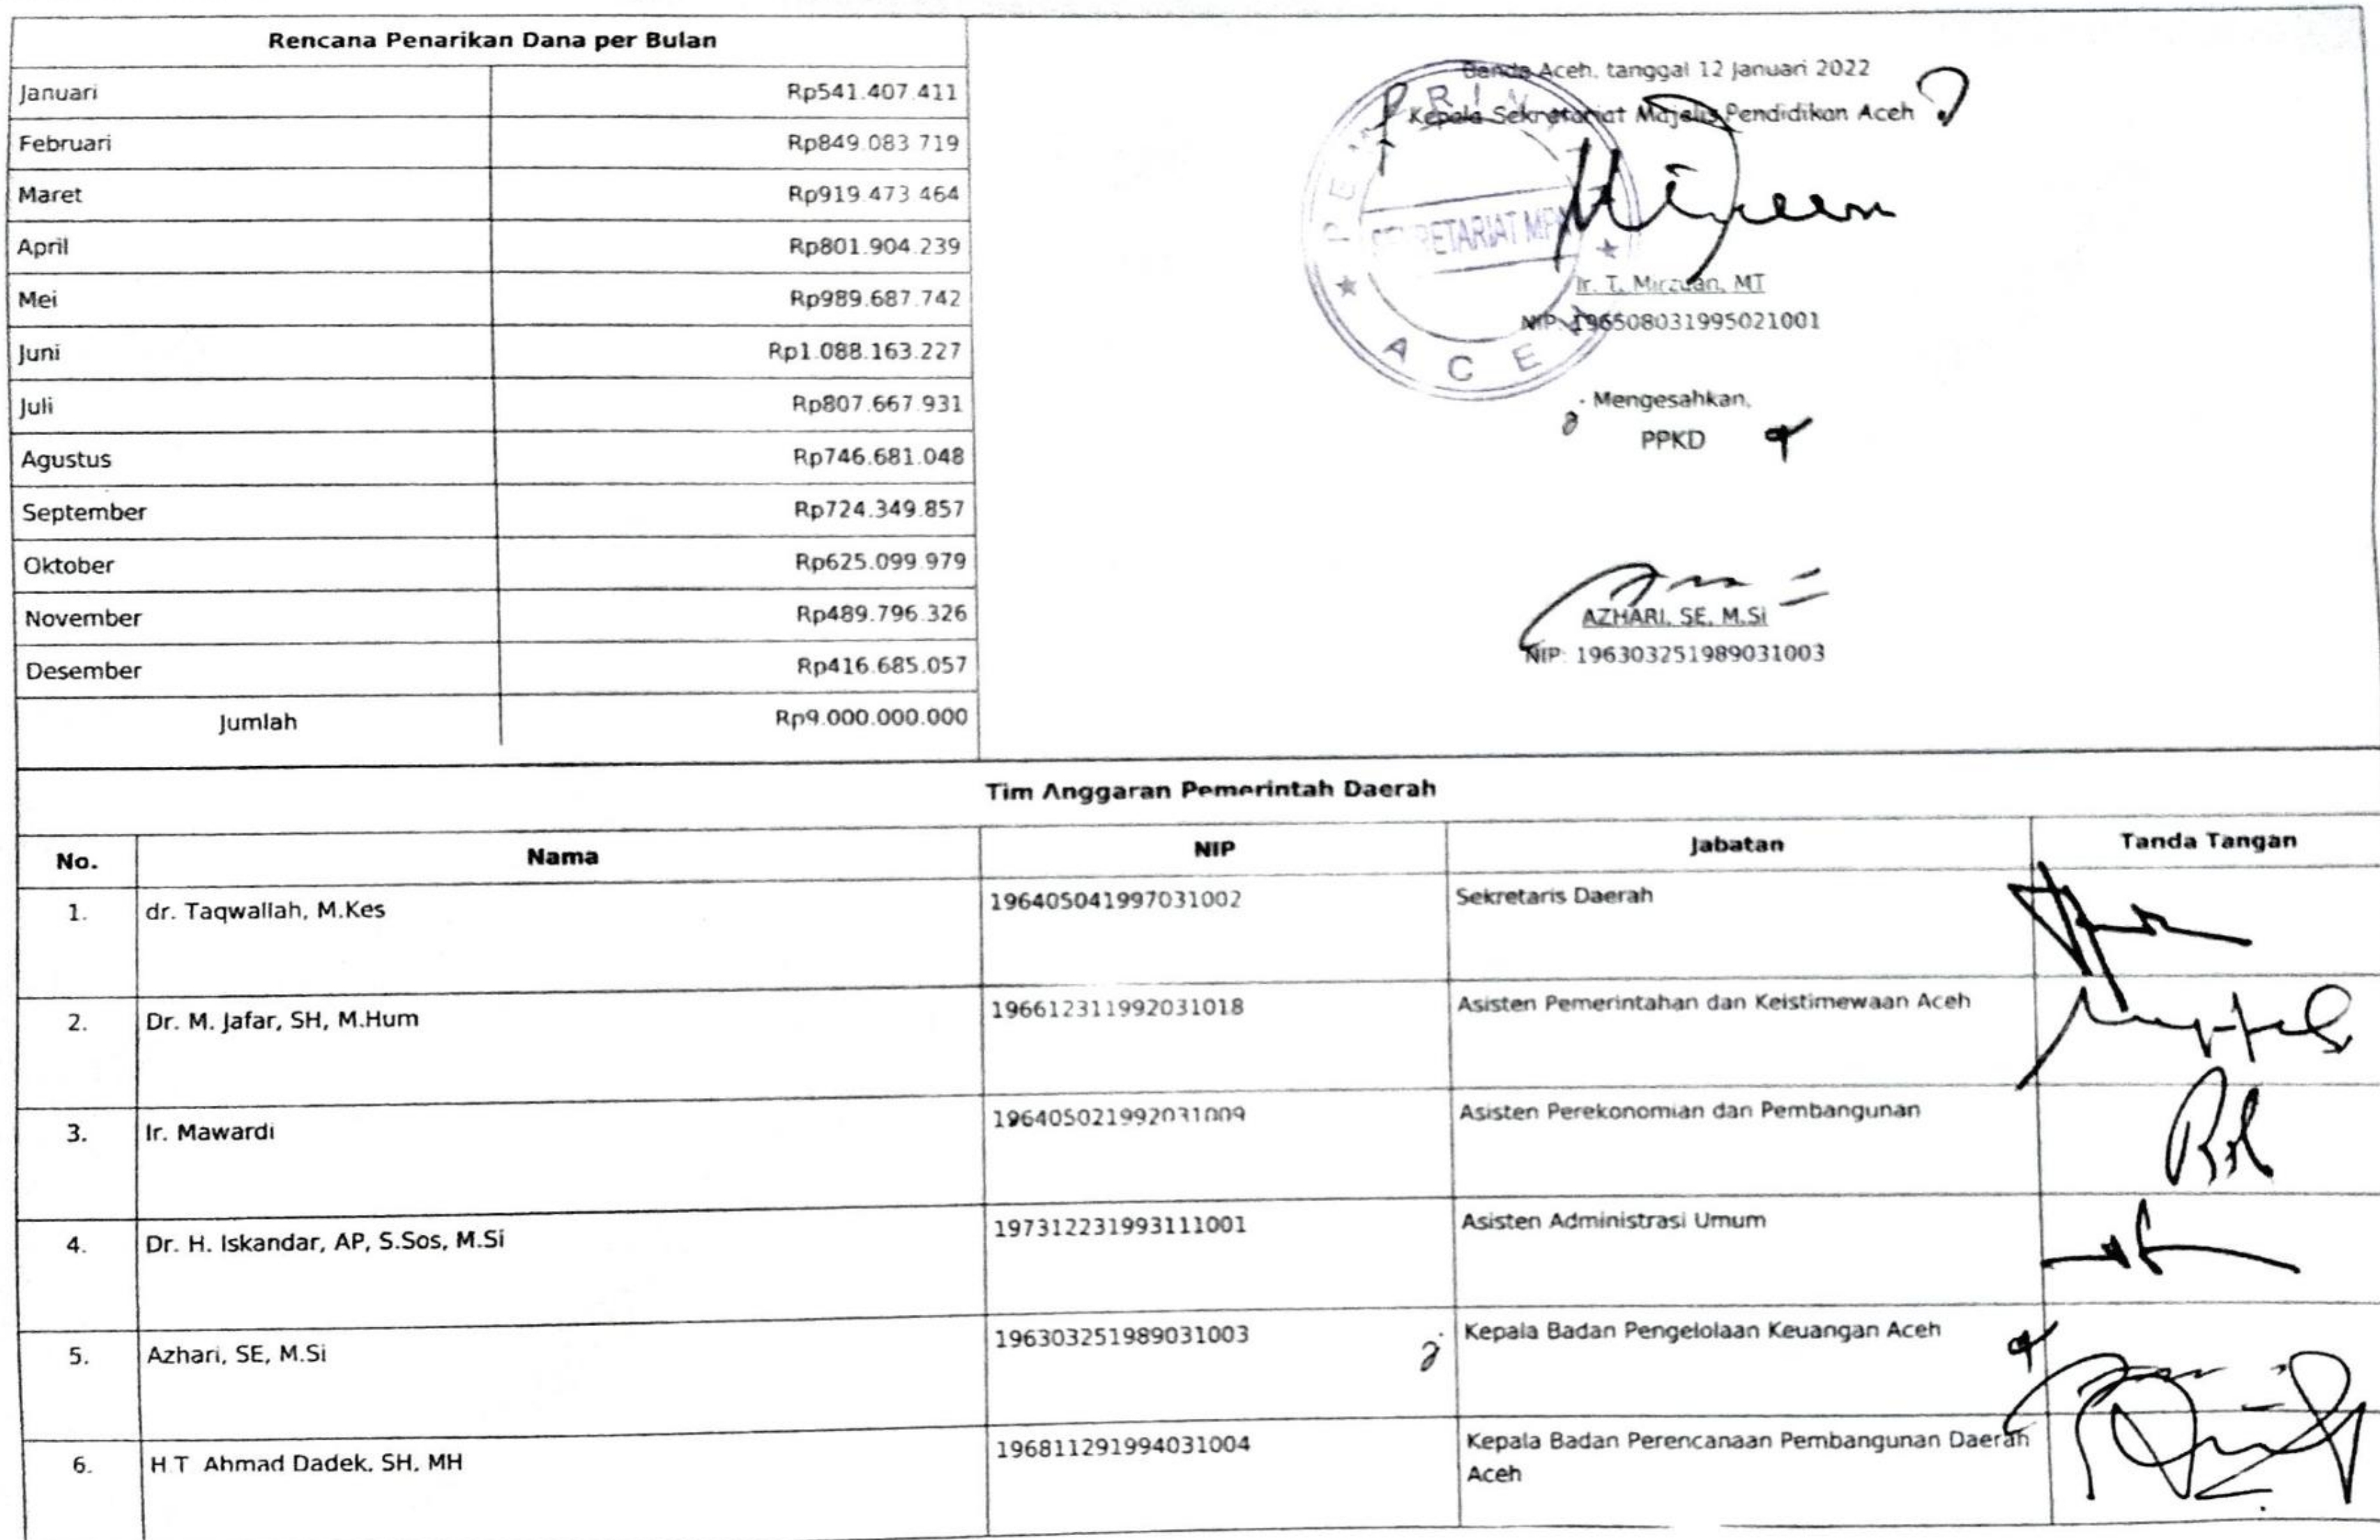 Rencana Penarikan Dana per Bulan
Januari Rp541.407.411
Februari Rp849.083.719
Maret Rp919.473.464
April Rp801.904.239
Mei Rp989.687.742
Juni Rp1.088.163.227
Juli Rp807.667.931
Agustus Rp746.681.048
September Rp724.349.857
Oktober Rp625.099.979
November Rp489.796.326
Desember Rp416.685.057
Jumlah Rp9.000.000.000
Banda Aceh, tanggal 12 Januari 2022
Kepala Sekretariat Majelis Pendidikan Aceh
SEKRETARIAT MPA
ACEH
Ir. T. Mirzuan, MT
NIP: 196508031995021001
Mengesahkan,
PPKD
AZHARI, SE, M.Si
NIP: 196303251989031003
Tim Anggaran Pemerintah Daerah
No. Nama NIP Jabatan Tanda Tangan
1. dr. Taqwallah, M.Kes 196405041997031002 Sekretaris Daerah
2. Dr. M. Jafar, SH, M.Hum 196612311992031018 Asisten Pemerintahan dan Keistimewaan Aceh
3. Ir. Mawardi 196405021992031009 Asisten Perekonomian dan Pembangunan
4. Dr. H. Iskandar, AP, S.Sos, M.Si 197312231993111001 Asisten Administrasi Umum
5. Azhari, SE, M.Si 196303251989031003 Kepala Badan Pengelolaan Keuangan Aceh
6. H.T Ahmad Dadek, SH, MH 196811291994031004 Kepala Badan Perencanaan Pembangunan Daerah
Aceh